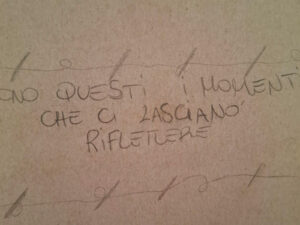 ONO QUESTI I MOMENTI
CHE CI LASCIANO
RIFLETTERE